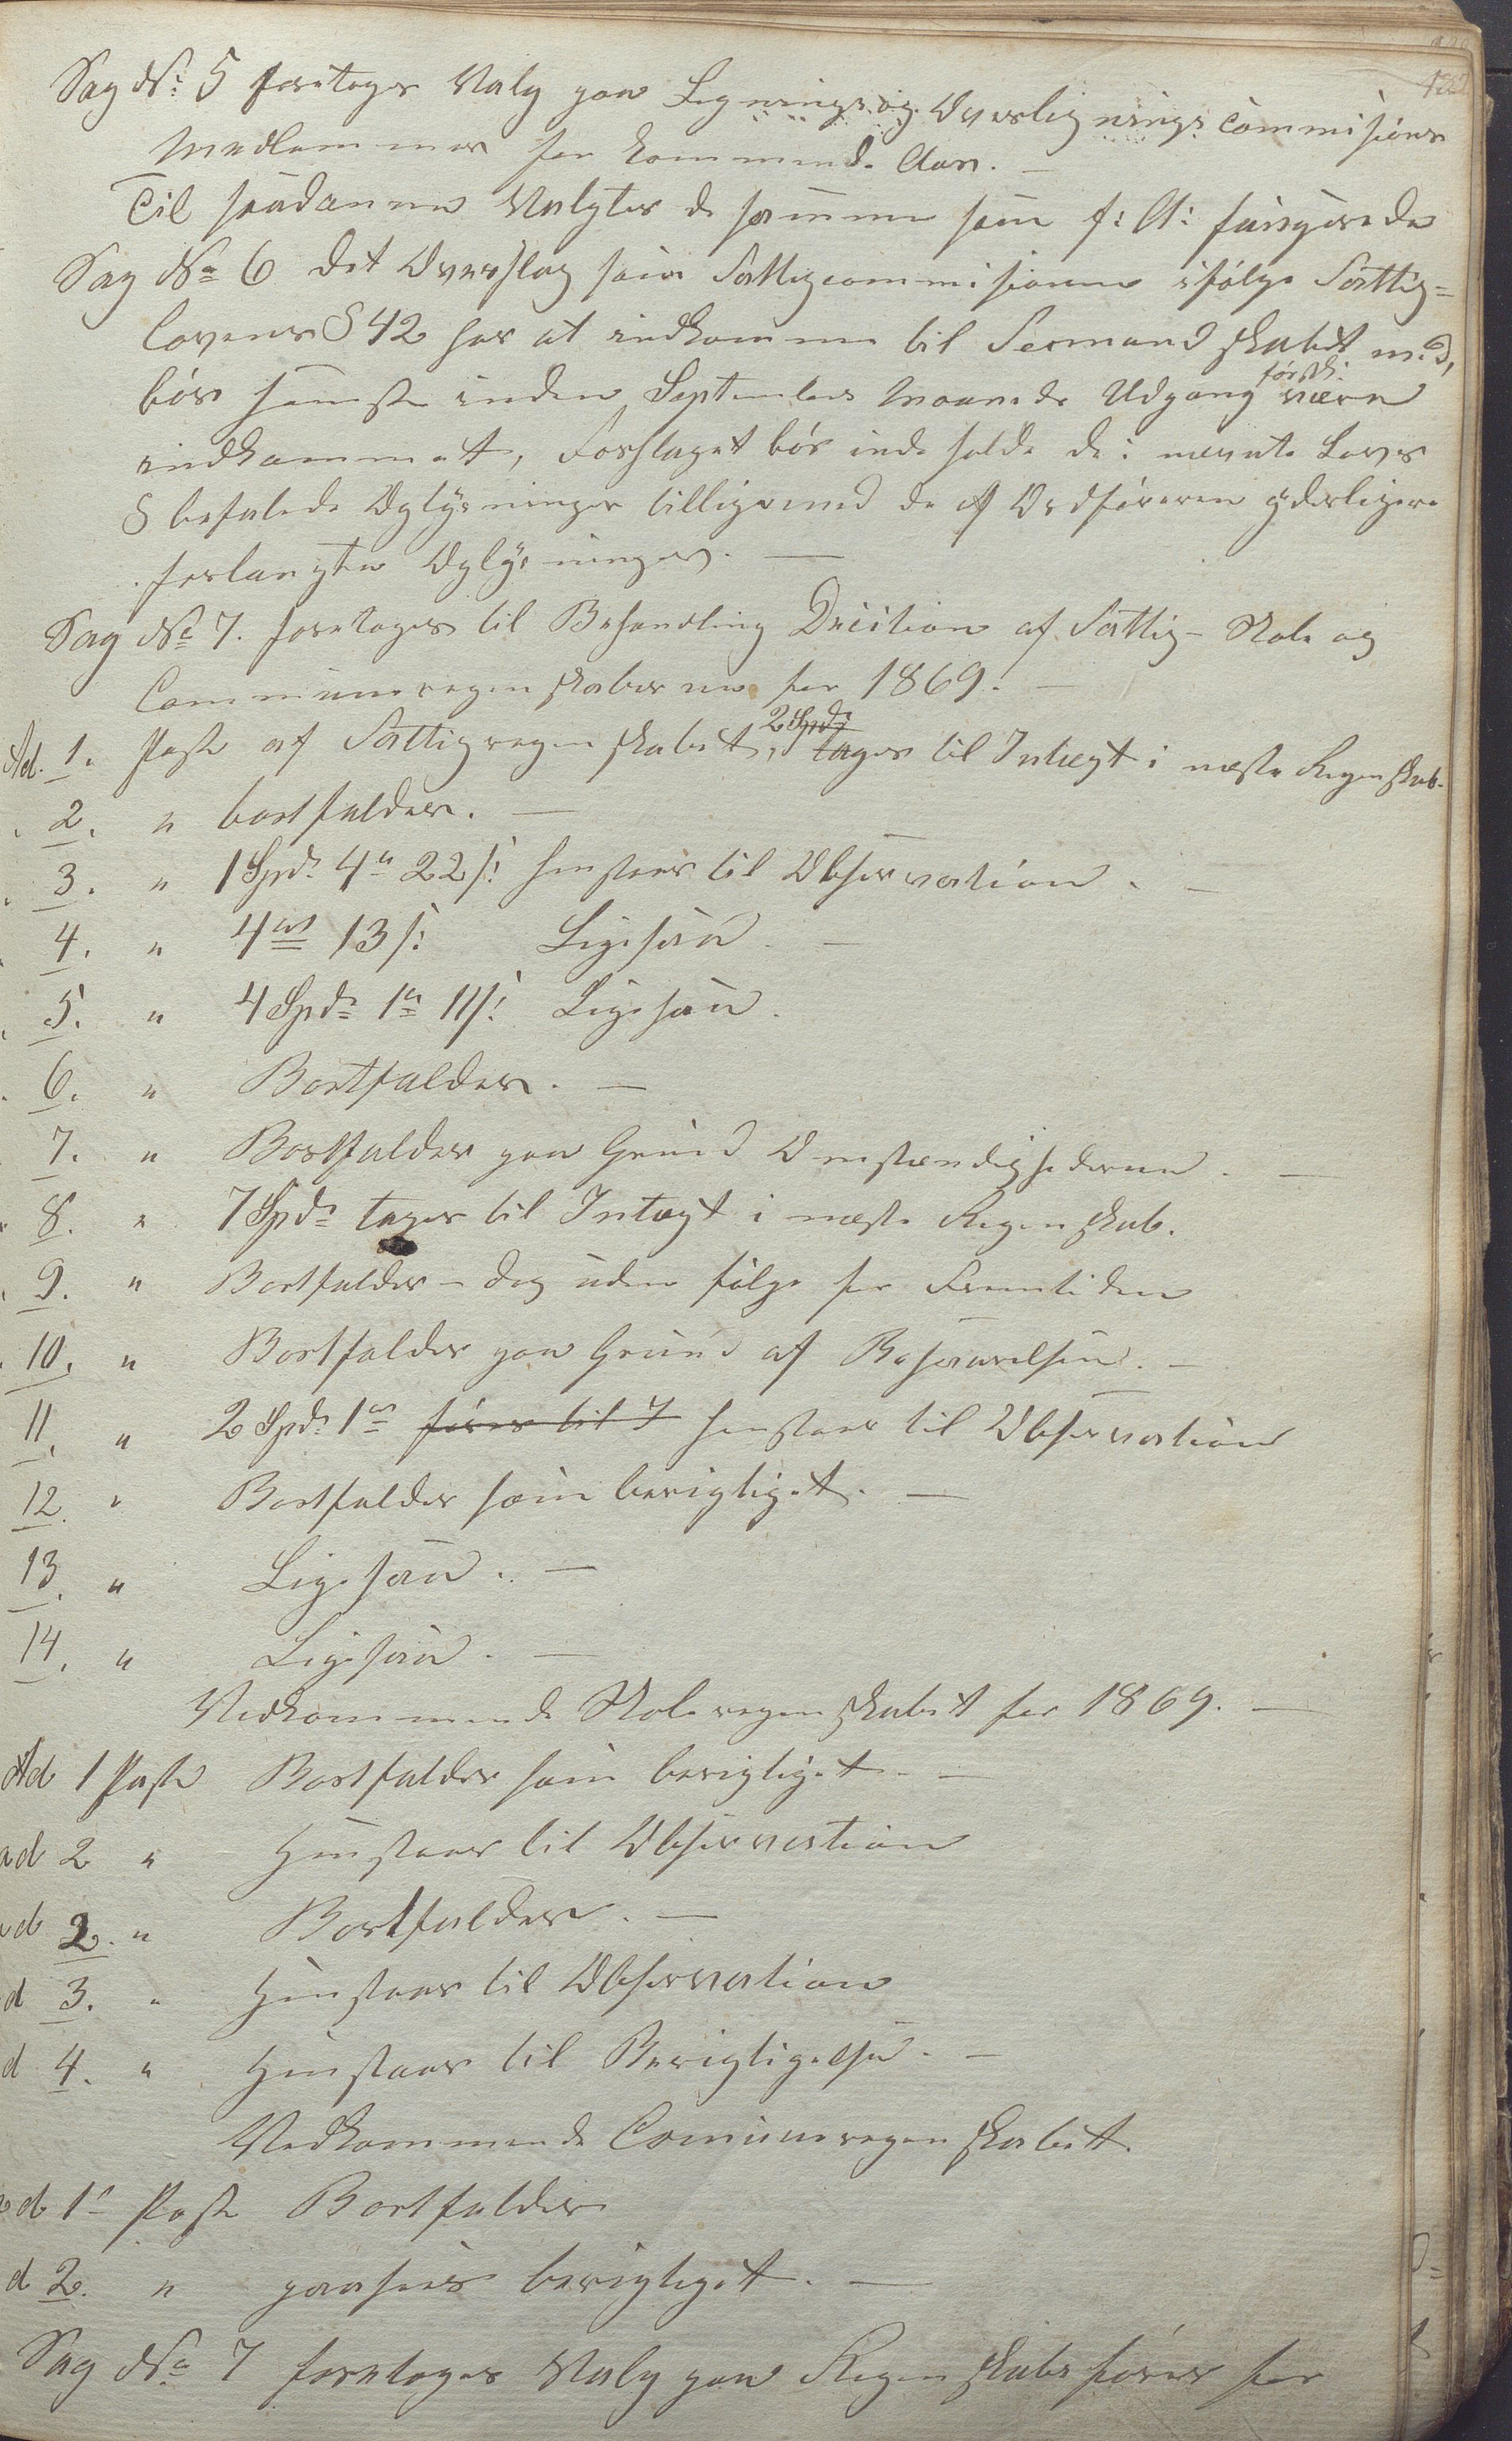 Sag No: 5 foretoges Valg paa Lignings og Overlignings Commisions
Medlemmer for kommende Aar. —
Til saadanne Valgtes de samme som f: A: fungerede
Sag No 6 Det Overslag som Fattigcommisionen ifølge Fattig=
lovens § 42 har at indkomme til Formandskabet med,
bør seneste inden Septembers Maaneds Udgang være
indkommet, Forslaget bør indeholde de i nævnte Lovs
§ befalede Oplysninger tilligemed de af Ordføreren yderligere
forlangte Oplysninger. —
Sag No 7. foretoges til Behandling Decition af Fattig- Skole og
Communeregenskaberne for 1869. —
2 Spd:
Ad. 1. Post af Fattigregenskabet, tages til Intægt i næste Regenskab.
2. " bortfalder. —
3. " 1 Spd. 4 " 22 s: henstaar til Observation. —
4. " 4 " 13 s: Ligesaa. —
5. " 4 Spd: 1 " 11 s: Ligesaa.
6. " Bortfalder. —
7. " Bortfalder paa Grund Omstændighederne. —
8. " 7 Spd: tages til Intægt i næste Regenskab.
9. " Bortfalder — dog uden følge for Fremtiden
10. " Bortfalder paa Grund af Besvarelsen. —
11. " 2 Spd: 1 " føres til I henstaar til Observation
12. " Bortfalder som berigtiget. —
13. " Ligesaa. —
14. " Ligesaa. —
Vedkommende Skoleregenskabet for 1869. —
Ad 1 Post Bortfalder som berigtiget. —
ad 2 " Henstaar til Observation
ad 2. " Bortfalder. —
d 3. " Henstaar til Observation
d 4. " Henstaar til Berigtigelse. —
Vedkommende Comuneregenskabet.
ad 1 Post Bortfalder
d 2. " paasees berigtiget. —
Sag No 7 foretoges Valg paa Regenskabsfører for